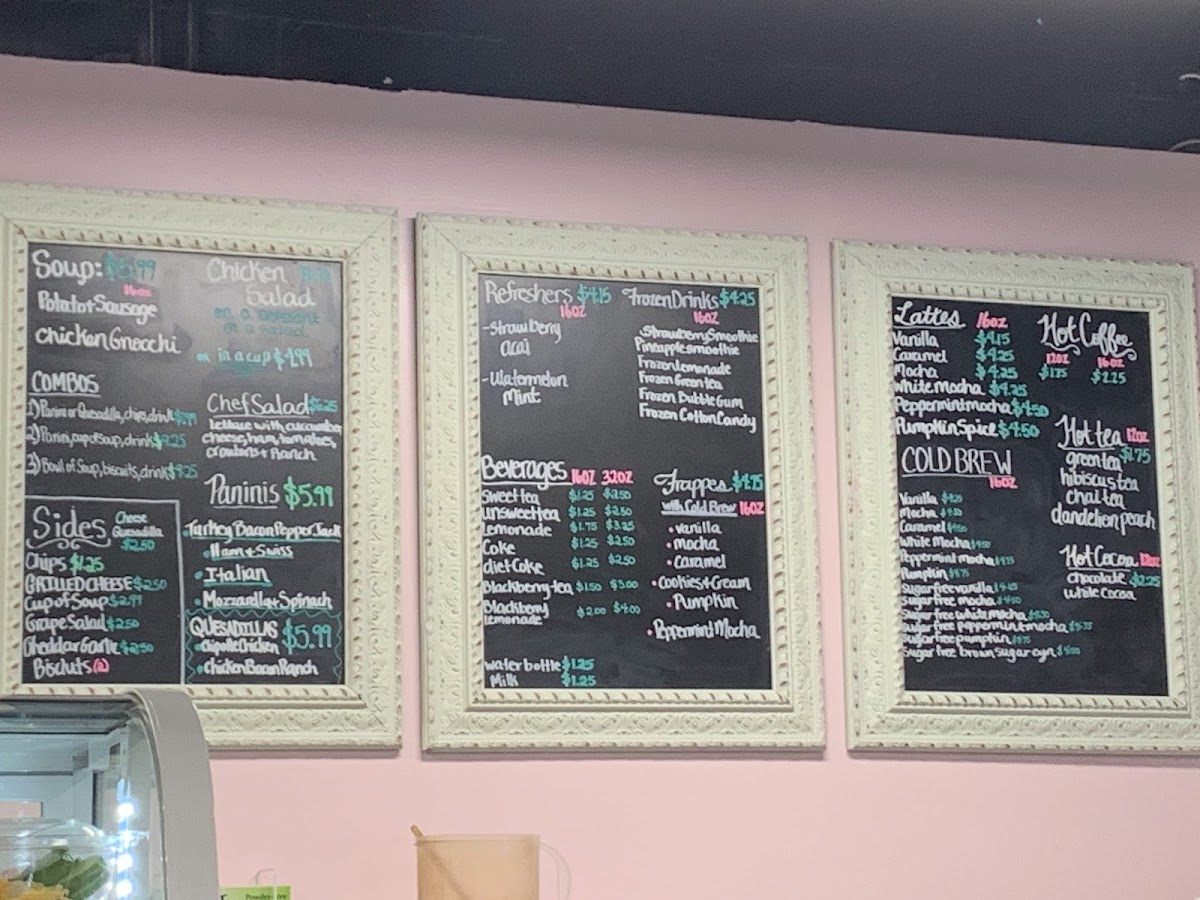 Soup: $5.99
16oz
Potatot Sausage
chicken Gnocchi
COMBOS
1) Panini or Quesadilla, chips, drink
2) Panini, cup of soup, drink $9.25
3) Bowl of Soup, biscuits, drink $9.25
Sides
Cheese
Quesadilla
$2.50
Chips $1.25
GRILLED CHEESE $2.50
Cup of Soup $2.99
Grape Salad $2.50
Cheddar Garlic $2.50
Biscuts (2)
Chicken
Salad
on a croissant
or in a cup $4.99
Chef Salad $6.25
lettuce with cucumber
cheese, ham, tomatoes,
croutons + Ranch
Paninis $5.99
Turkey Bacon Pepper Jack
Ham + Swiss
Italian
Mozzarella + Spinach
QUESADILLAS $5.99
Chipotle Chicken
chicken Bacon Ranch
Refreshers $4.15
16oz
-Strawberry
acai
-Watermelon
Mint
Frozen Drinks $4.25
16oz
Strawberry Smoothie
Pineapple smoothie
Frozen Lemonade
Frozen Green tea
Frozen Bubble Gum
Frozen Cotton Candy
Beverages 16oz 32oz
Sweet tea $1.25 $2.50
unsweet tea $1.25 $2.50
Lemonade $1.75 $3.25
Coke $1.25 $2.50
diet Coke $1.25 $2.50
Blackberry tea $1.50 $3.00
Blackberry
lemonade $2.00 $4.00
water bottle $1.25
Milk $1.25
Frappes $4.75
with Cold Brew 16oz
• vanilla
• mocha
• caramel
• Cookies + Cream
• Pumpkin
• Peppermint Mocha
Lattes 16oz
Vanilla $4.15
Caramel $4.25
Mocha $4.25
White Mocha $4.25
Peppermint mocha $4.50
Pumpkin Spice $4.50
COLD BREW
16oz
Vanilla
Mocha
Caramel
White Mocha
Peppermint mocha
Pumpkin
Sugar free vanilla
Sugar free mocha
Sugar free white mocha
Sugar free peppermint mocha
Sugar free pumpkin
Sugar free brown sugar cyn
Hot Coffee
12oz 16oz
$1.75 $2.25
Hot tea 12oz
green tea $1.75
hibiscus tea
chai tea
dandelion peach
Hot Cocoa 12oz
chocolate $2.25
white cocoa